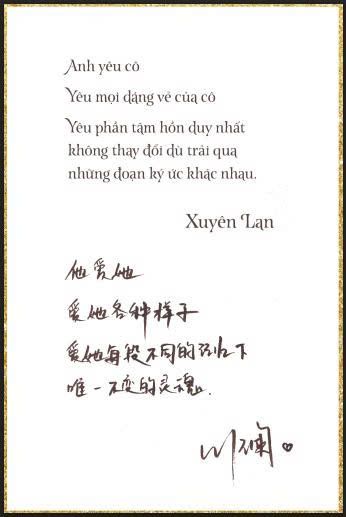 Anh yêu cô
Yêu mọi dáng vẻ của cô
Yêu phần tâm hồn duy nhất
không thay đổi dù trải qua
những đoạn ký ức khác nhau.
Xuyên Lan
他爱她
爱她各种样子
爱她每段不同的记忆下
唯一不变的灵魂.
川澜